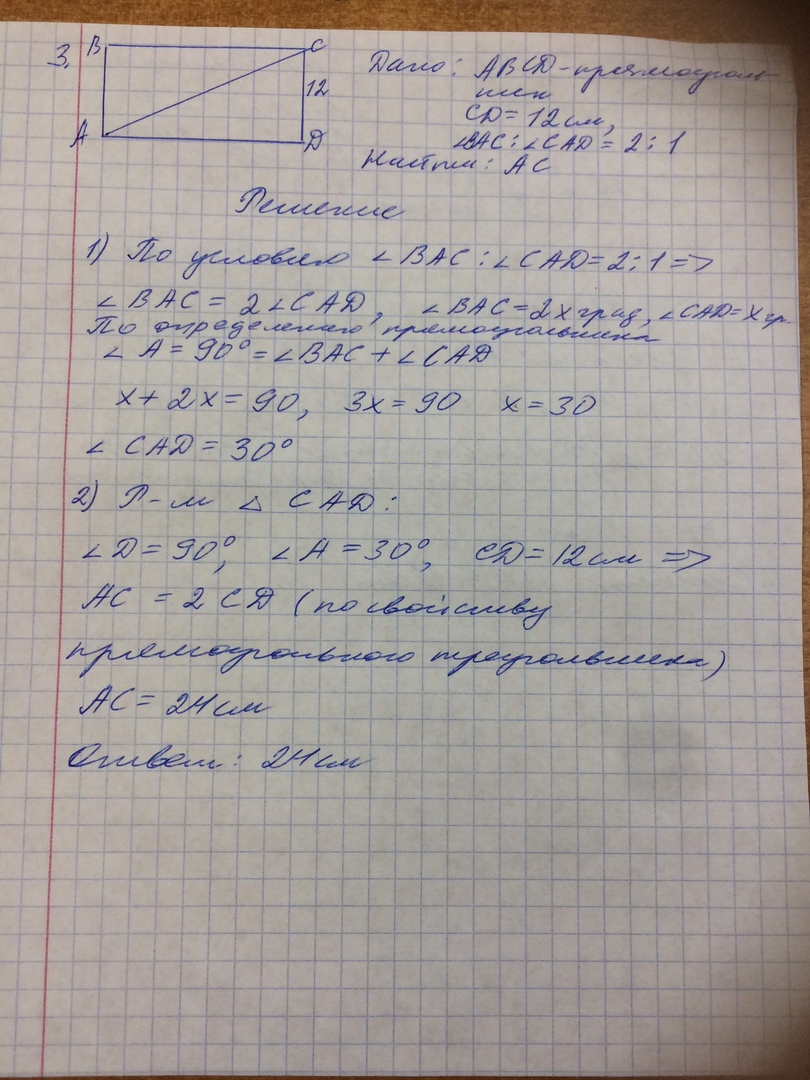 3.
B C
12
A D
Дано: ABCD - прямоуголь-
ник
CD = 12 см,
∠BAC : ∠CAD = 2 : 1
Найти: AC
Решение
1) По условию ∠BAC : ∠CAD = 2 : 1 =>
∠BAC = 2∠CAD, ∠BAC = 2x град, ∠CAD = x гр.
По определению прямоугольника
∠A = 90° = ∠BAC + ∠CAD
x + 2x = 90, 3x = 90 x = 30
∠CAD = 30°
2) Р-м △ CAD:
∠D = 90°, ∠A = 30°, CD = 12 см =>
AC = 2CD (по свойству
прямоугольного треугольника)
AC = 24 см
Ответ: 24 см